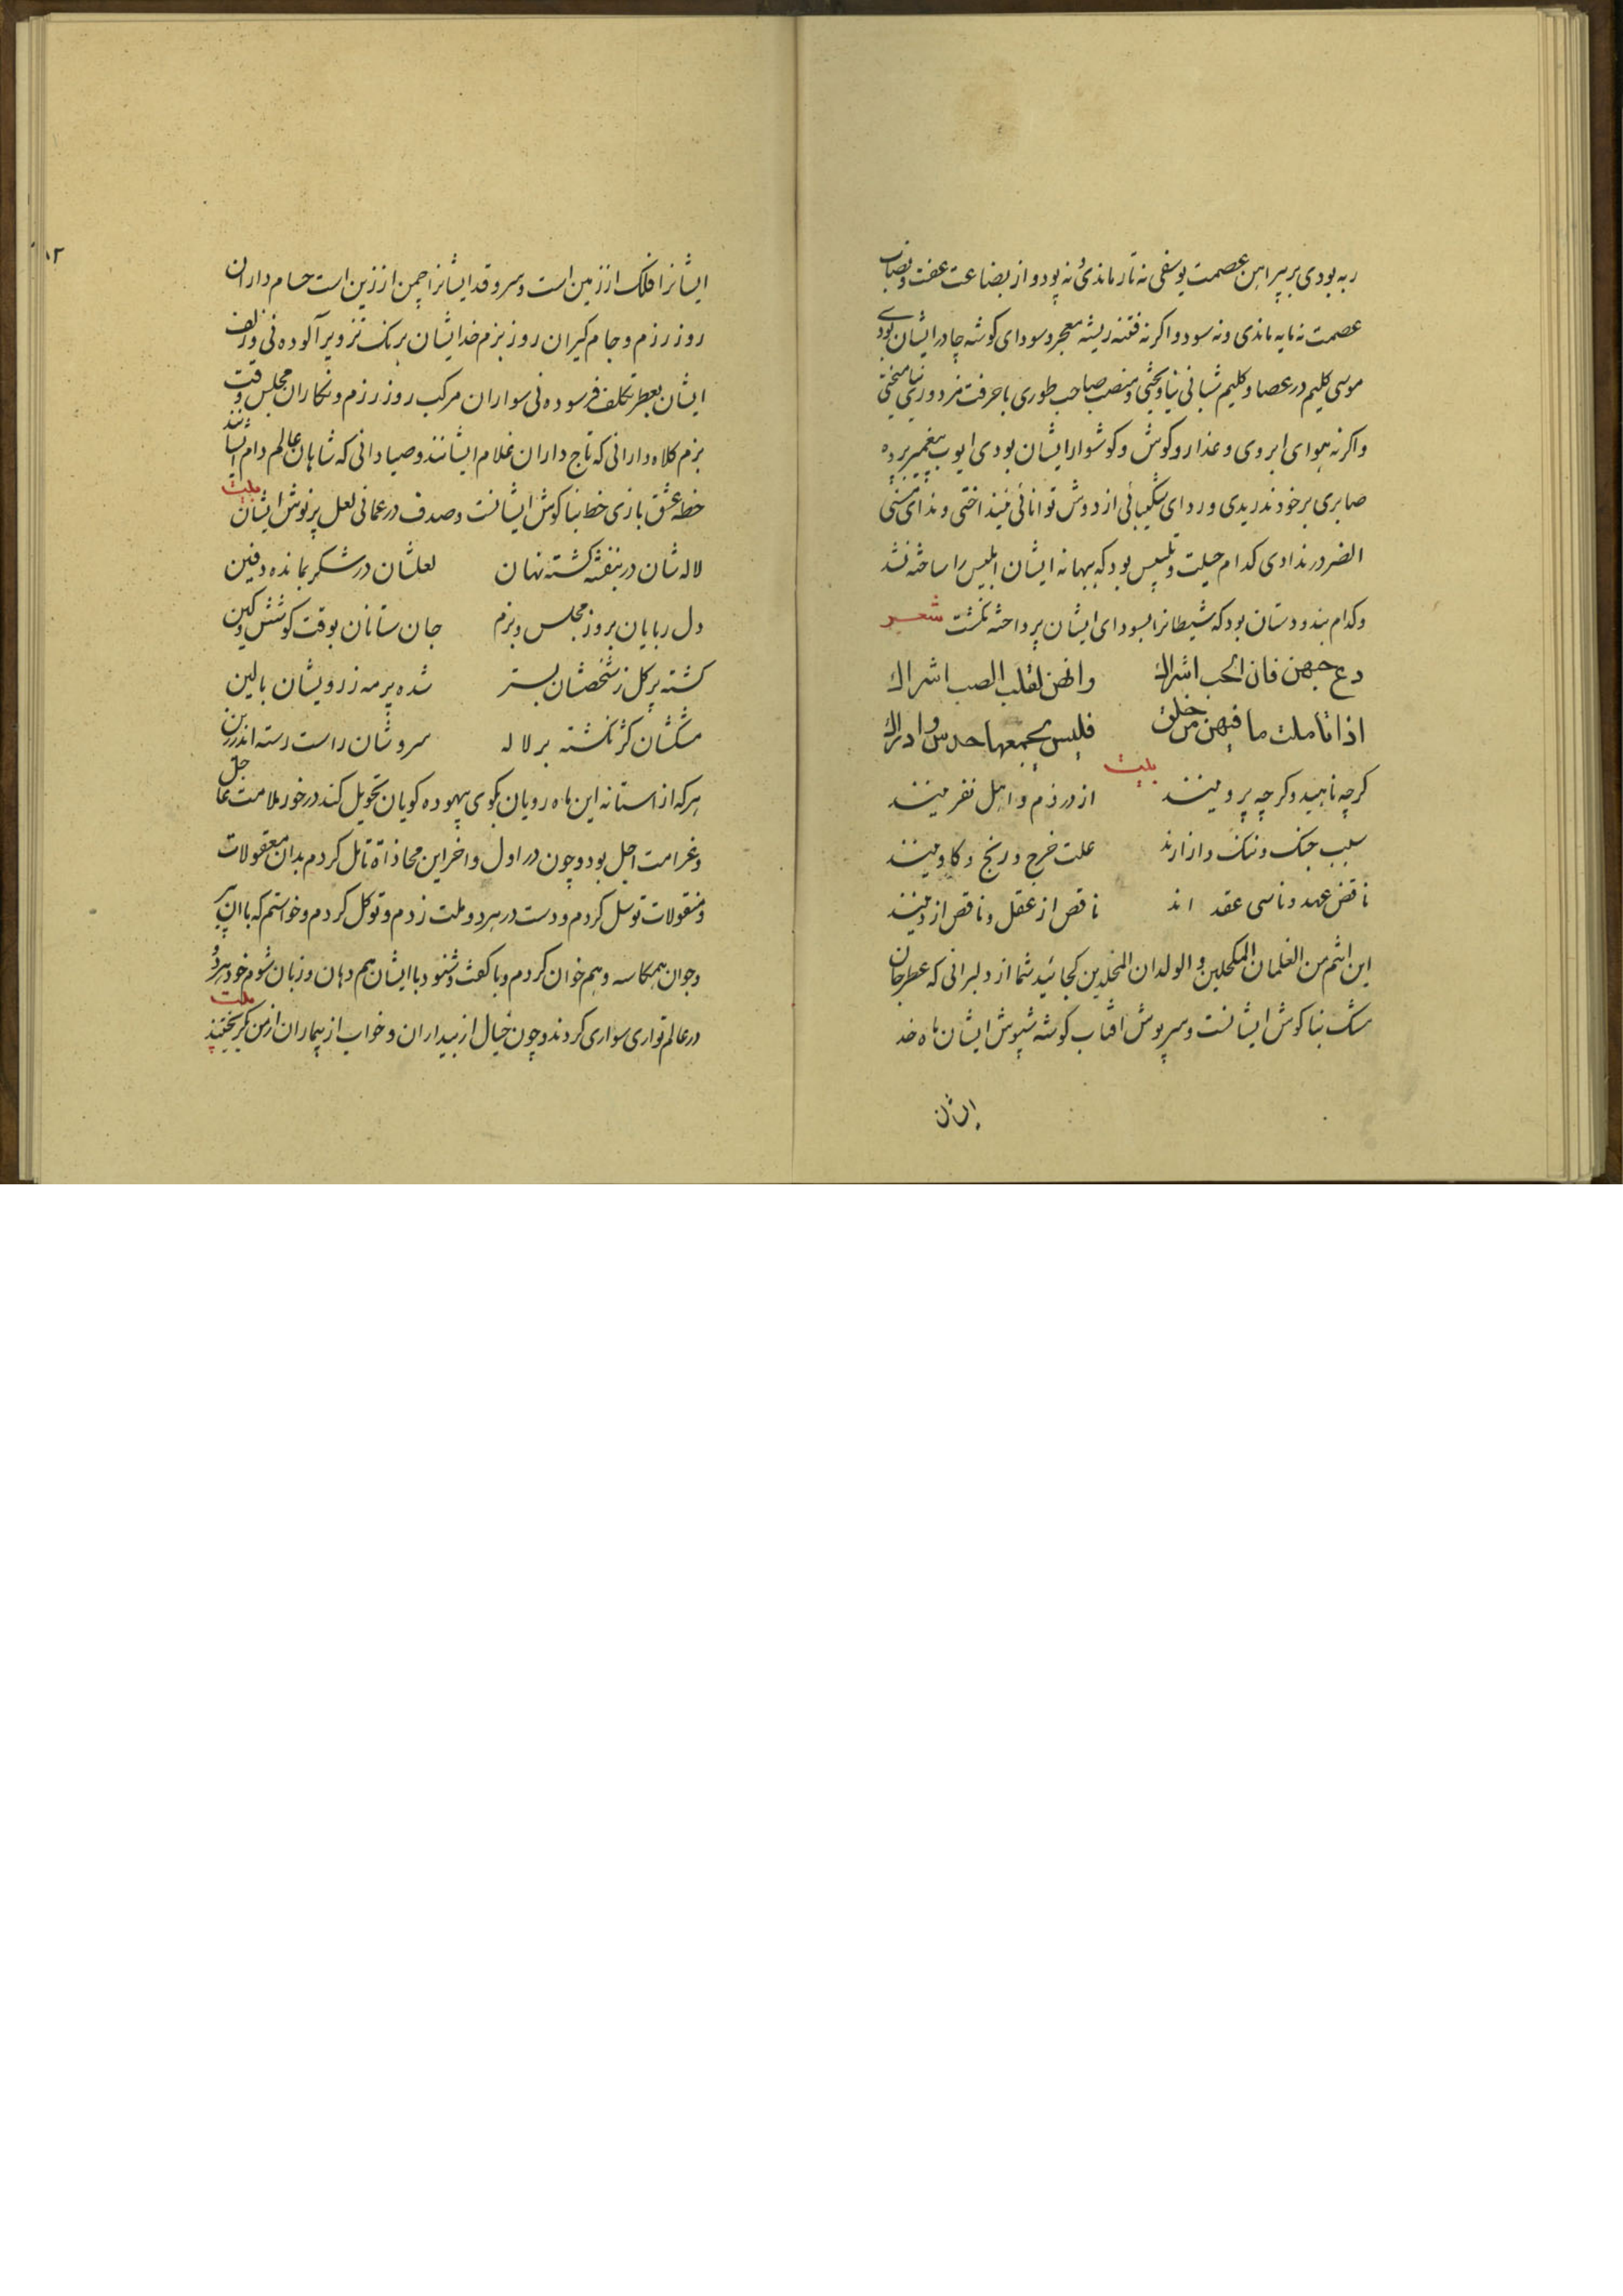 ربه بودی بر پیراهن عصمت یوسفی نه تار ماندی و نه پود و از بضاعت عفت و نصاب
عصمت نه مایه ماندی و نه سود و اگر نه فتنه ریشه معجر و سودای کوشه چادر ایشان بودی
موسی کلیم در عصا و کلیم شبانی نیاویختی و منصب صاحب طوری با حرفت مزدوری نیامیختی
واکرنه هوای ابروی و عذار و کوش و کوشوار ایشان بودی ایوب پیغمبر پرده
صابری بر خود ندریدی و ردای شکیبائی از دوش توانائی نینداختی و ندای مسنی
الضر در ندادی کدام حیلت و تلبیس بود که ببهانه ایشان ابلیس را ساخته نشد
وکدام بند و دستان بود که شیطانرا بسودای ایشان پرداخته نکشت شعر
دع حبهن فان الحب اشراك وانهن لقلب الصب اشراك
اذا تاملت ما فیهن من خلق فلیس یجمعها حدس و ادراك
بیت
کرچه ناهید و کرچه پروینند از در ذم و اهل نفرینند
سبب جنک و ننک و ازارند علت خرج و رنج و کاوینند
ناقض عهد و ناسی عقد اند ناقص از عقل و ناقص از دینند
این انتم من الغلمان المکحلین و الولدان المخلدین کجائید شما از دلبرانی که عطر جان
مشک بناکوش ایشانست و سرپوش افتاب کوشه شبپوش ایشان ماه خد
ایشان
۱۲
ایشانرا فلک از زمین است و سرو قد ایشانرا چمن از زین است حسام داران
روز رزم و جام کیران روز بزم خد ایشان برنک تزویر آلوده نی و زلف
ایشان بعطر تکلف فرسوده نی سواران مرکب روز رزم و نکاران مجلس وقت
بزم کلاه دارانی که تاج داران غلام ایشانند و صیادانی که شاهان عالم دام ایشانند
خطه عشق بازی خط بناکوش ایشانست و صدف در عمانی لعل پر نوش ایشان بیت
لاله شان در بنفشه کشته نهان لعلشان در شکر بمانده دفین
دل ربایان بروز مجلس و بزم جان ستانان بوقت کوشش و کین
کشته پر کل ز شخصشان بستر شده پر مه ز رویشان بالین
مشکشان کژ نکشته بر لاله سروشان راست رسته اندر زین
هرکه از استانه این ماه رویان بکوی بیهوده کویان تحویل کند در خور ملامت عاجل
وغرامت اجل بود و چون در اول و اخر این محاذاة تامل کردم بدان معقولات
و منقولات توسل کردم و دست در هر دو ملت زدم و توکل کردم و خواستم که با ان پیر
وجوان همکاسه و هم خوان کردم و با کفت و شنود با ایشان هم دهان و زبان شوم خود هر دو
در عالم تواری سواری کردند و چون خیال از بیداران و خواب از بیماران از من بکریختند بیت